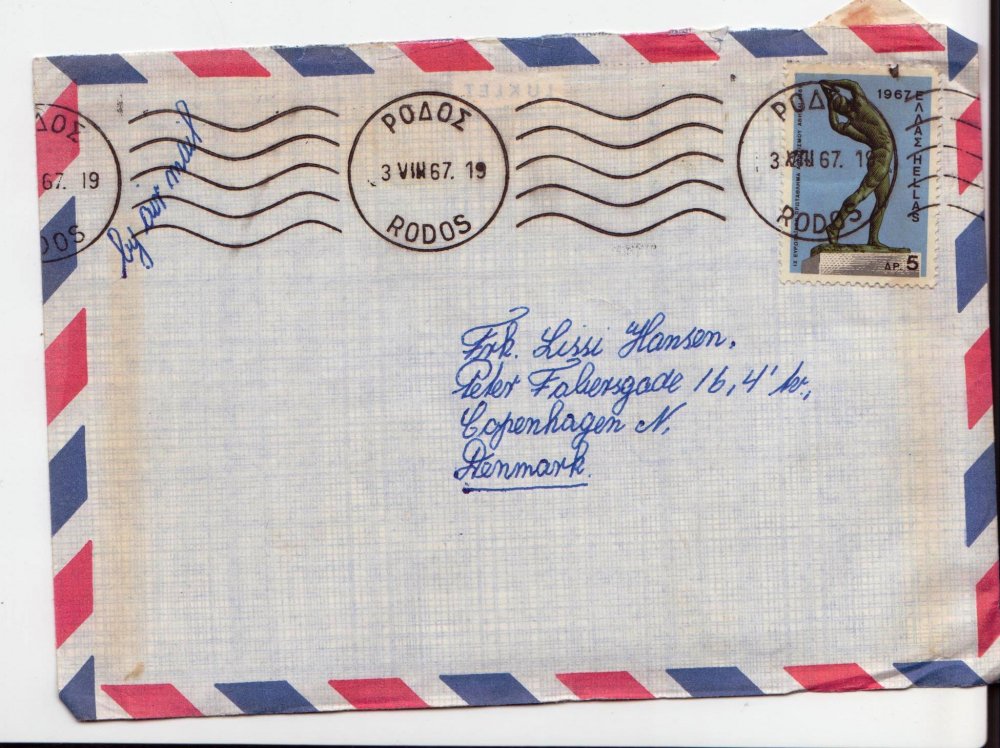 ΡΟΔΟΣ
3 VIII 67. 19
RODOS
ΔΟΣ
67. 19
DOS
ΡΟΔ
3 VIII 67. 19
RODOS
1967
ΕΛΛΑΣ HELLAS
ΔΡ. 5
by air mail
Frk. Lissi Hansen,
Peter Fabersgade 16, 4' tv.,
Copenhagen N,
Denmark.